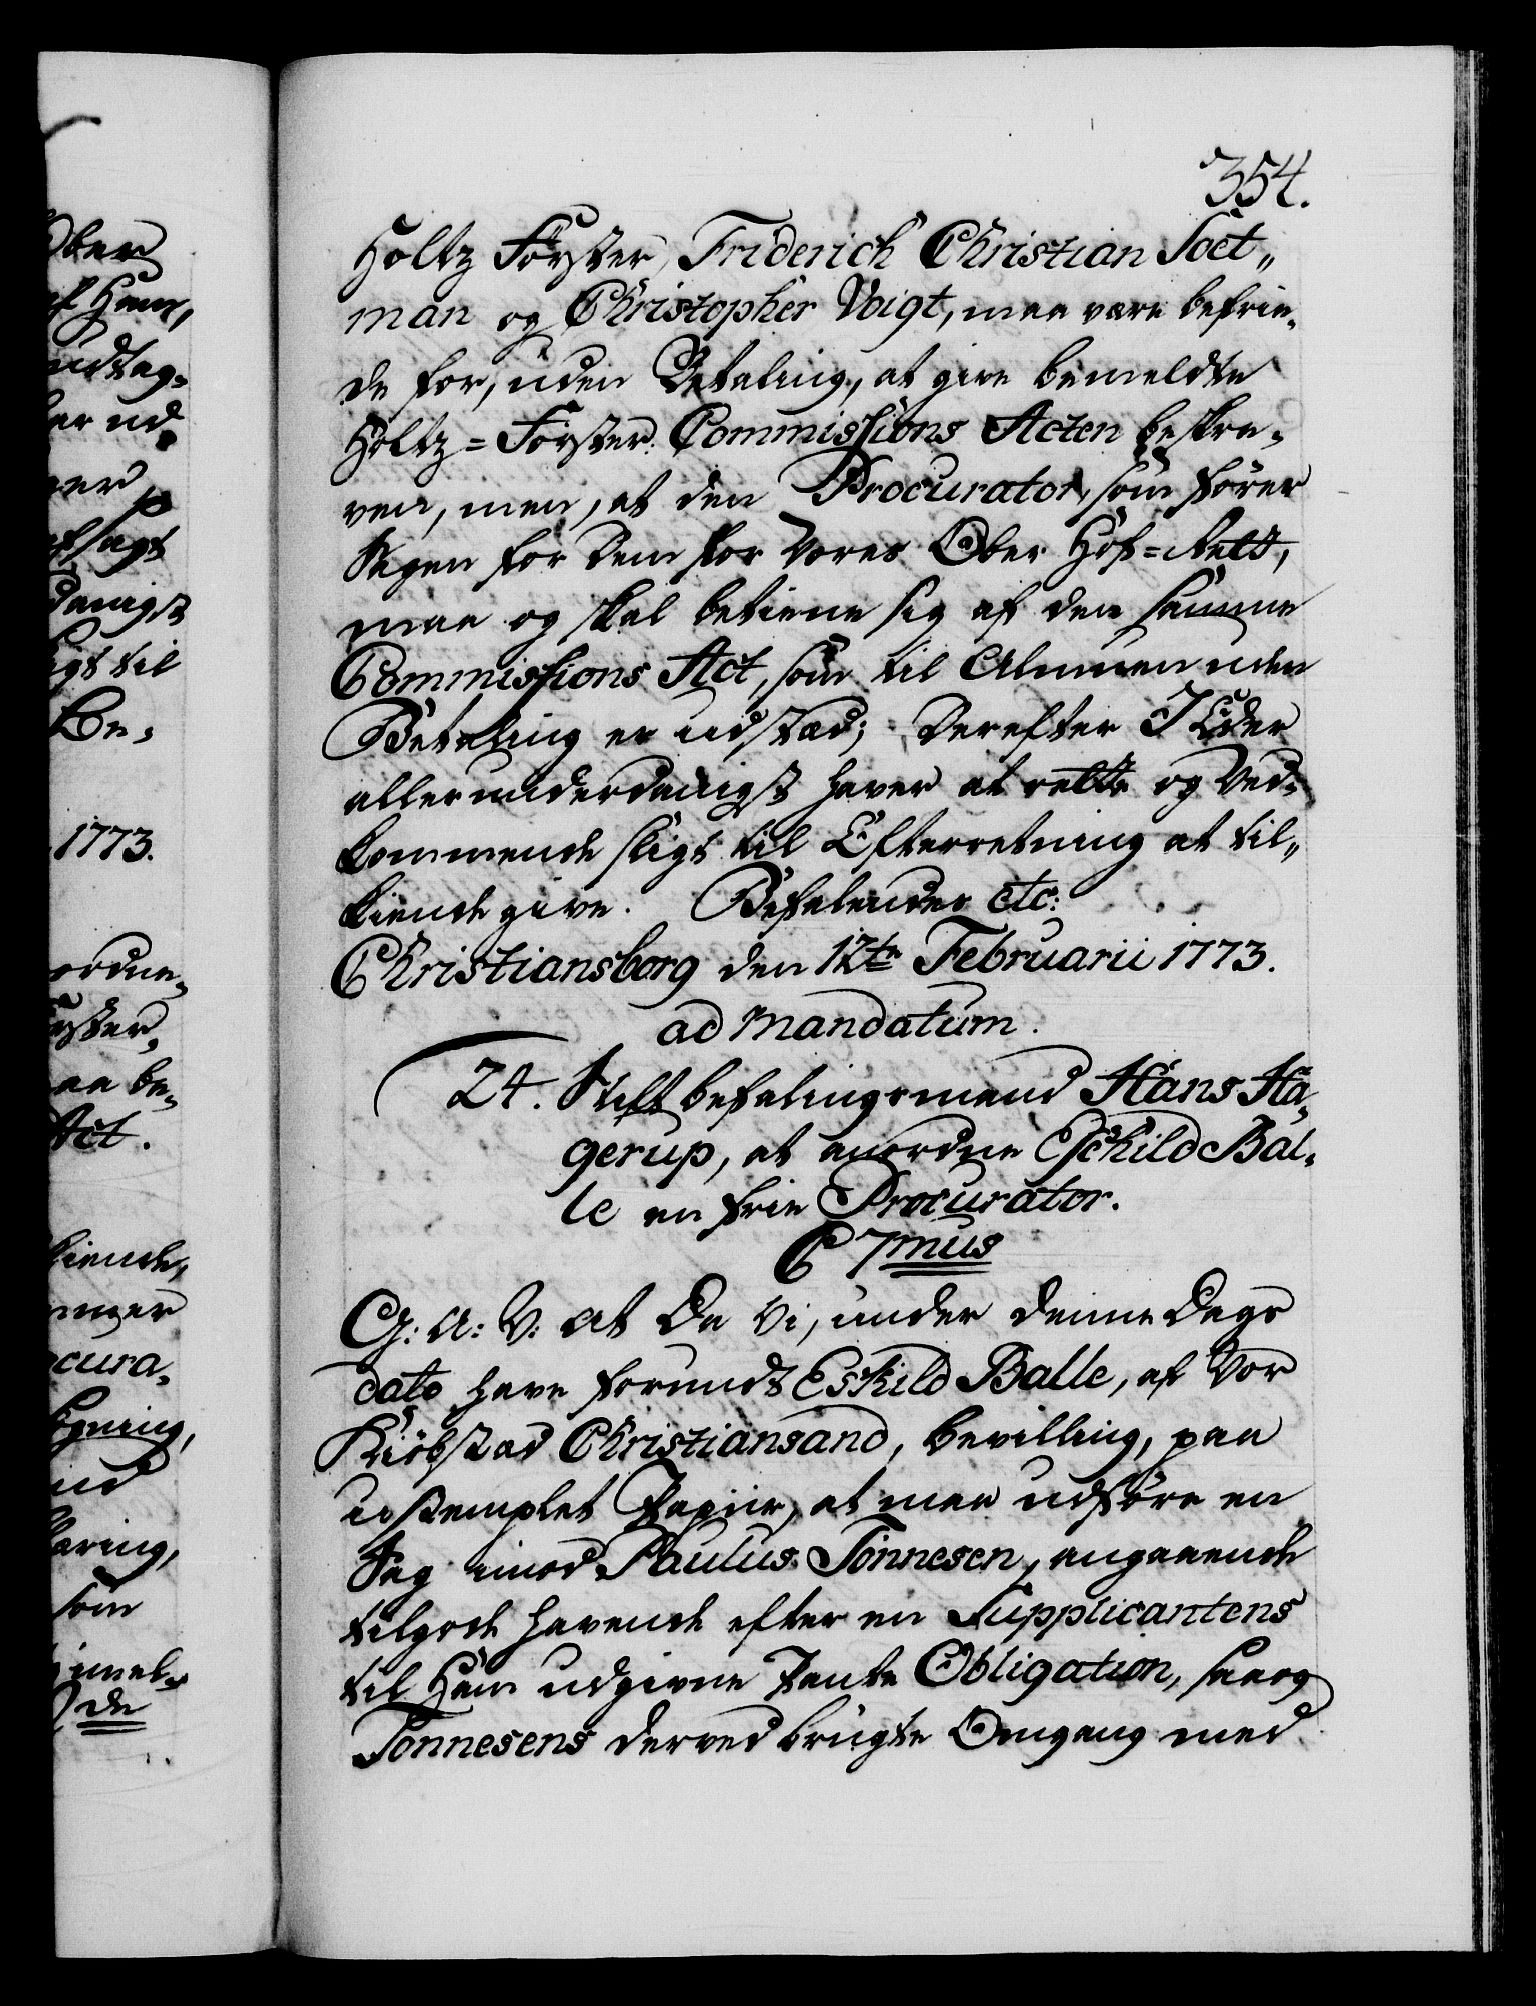 354.
Holtz Förster, Friderich Christian Poet„
man og Christopher Voigt, maa være befrie„
de for, uden Betaling, at give bemeldte
Holtz=Förster Commissions Acten beskre„
ven, men, at den Procurator, som fører
Sagen for dem for Vores Ober Hof=Rett,
maa og skal betiene sig af den samme
Commissions Act, som til Almuen uden
Betaling er udstæd; Derefter I Eder
allerunderdanigst haver at rette og Ved„
kommende sligt til Efterretning at til„
kiende give. Befalendes etc:
Christiansborg den 12te Februarii 1773.
ad mandatum.
24. Stiftbefalingsmand Hans Ha„
gerup, at anordne Eschild Bal„
le en frie Procurator.
C 7mus
G: A: V: At Da Vi, under denne Dags
dato have forundt Eskild Balle, af Vor
Kiöbstad Christiansand, bevilling, paa
ustemplet Papiir, at maa udføre en
Sag imod Paulus Tönnesen, angaaende
tilgode havende efter en Supplicantens
til Ham udgivne Pante Obligation, saa og
Tönnesens derved brugte Omgang med
Ober
af Ham,
1773.
Act.
som
de